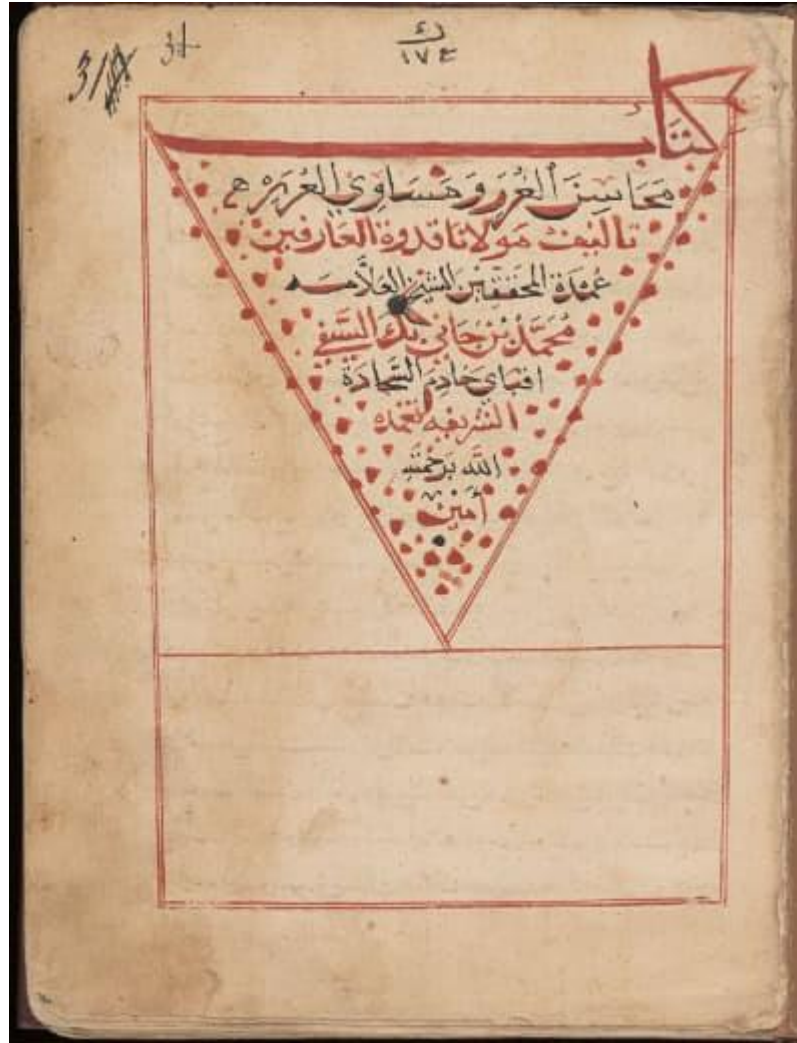 3/ 34
ك
١٧٤
كتاب
مَحَاسِنَ الغُرَرِ وَمَسَاوِي العُرَرِ
تاليف مَولانا قدوة العَارفين
عُمدَة المحققين الشيخ العَلاَّمه
مُحَمَّد بن جَاني بَك السَّيفي
اقباي خادم السَّجادَة
الشريفه تغمده
اللَّه بَرحمته
أمين